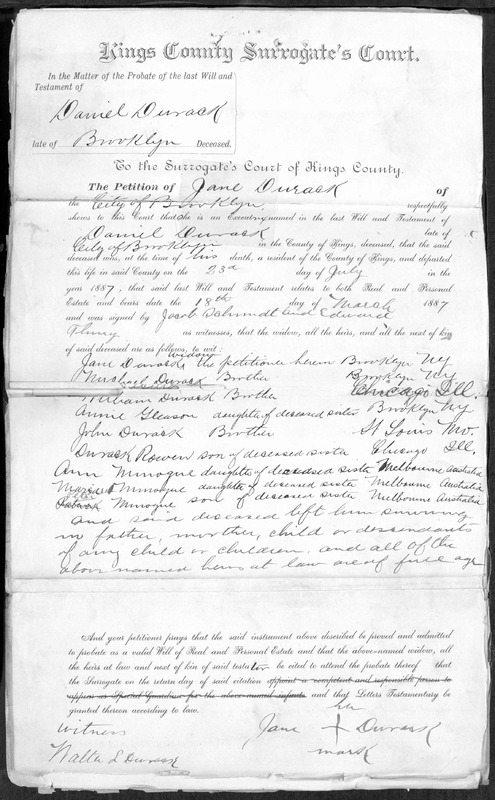 Kings County Surrogate's Court.
In the Matter of the Probate of the last Will and
Testament of
Daniel Durack
late of Brooklyn Deceased.
To the Surrogate's Court of Kings County.
The Petition of Jane Durack of
the City of Brooklyn, respectfully
shows to this Court that she is an Executrix named in the last Will and Testament of
Daniel Durack late of
City of Brooklyn in the County of Kings, deceased, that the said
deceased was, at the time of his death, a resident of the County of Kings, and departed
this life in said County on the 23d day of July in the
year 1887, that said last Will and Testament relates to both Real and Personal
Estate and bears date the 18th day of March 1887
and was signed by Jacob Schmidt and Edward
as witnesses, that the widow, all the heirs, and all the next of kin
of said deceased are as follows, to wit:
Jane Durack, widow the petitioner herein Brooklyn NY
Michael Durack Brother Brooklyn NY
William Durack Brother Chicago Ill.
Annie Gleason daughter of deceased sister Brooklyn NY
John Durack Brother St Louis Mo.
Durack Rowen son of deceased sister Chicago Ill.
Ann Minogue daughter of deceased sister Melbourne Australia
Minogue daughter of deceased sister Melbourne Australia
Minogue son of deceased sister Melbourne Australia
and said deceased left him surviving
no father, mother, child or descendants
of any child or children, and all of the
above named heirs at law are of full age
And your petitioner prays that the said instrument above described be proved and admitted
to probate as a valid Will of Real and Personal Estate and that the above-named widow, all
the heirs at law and next of kin of said testator be cited to attend the probate thereof that
the Surrogate on the return day of said citation appoint a competent and responsible person to
appear as Special Guardian for the above-named infants and that Letters Testamentary be
granted thereon according to law.
witness
Walter S Durack
her
Jane + Durack
mark